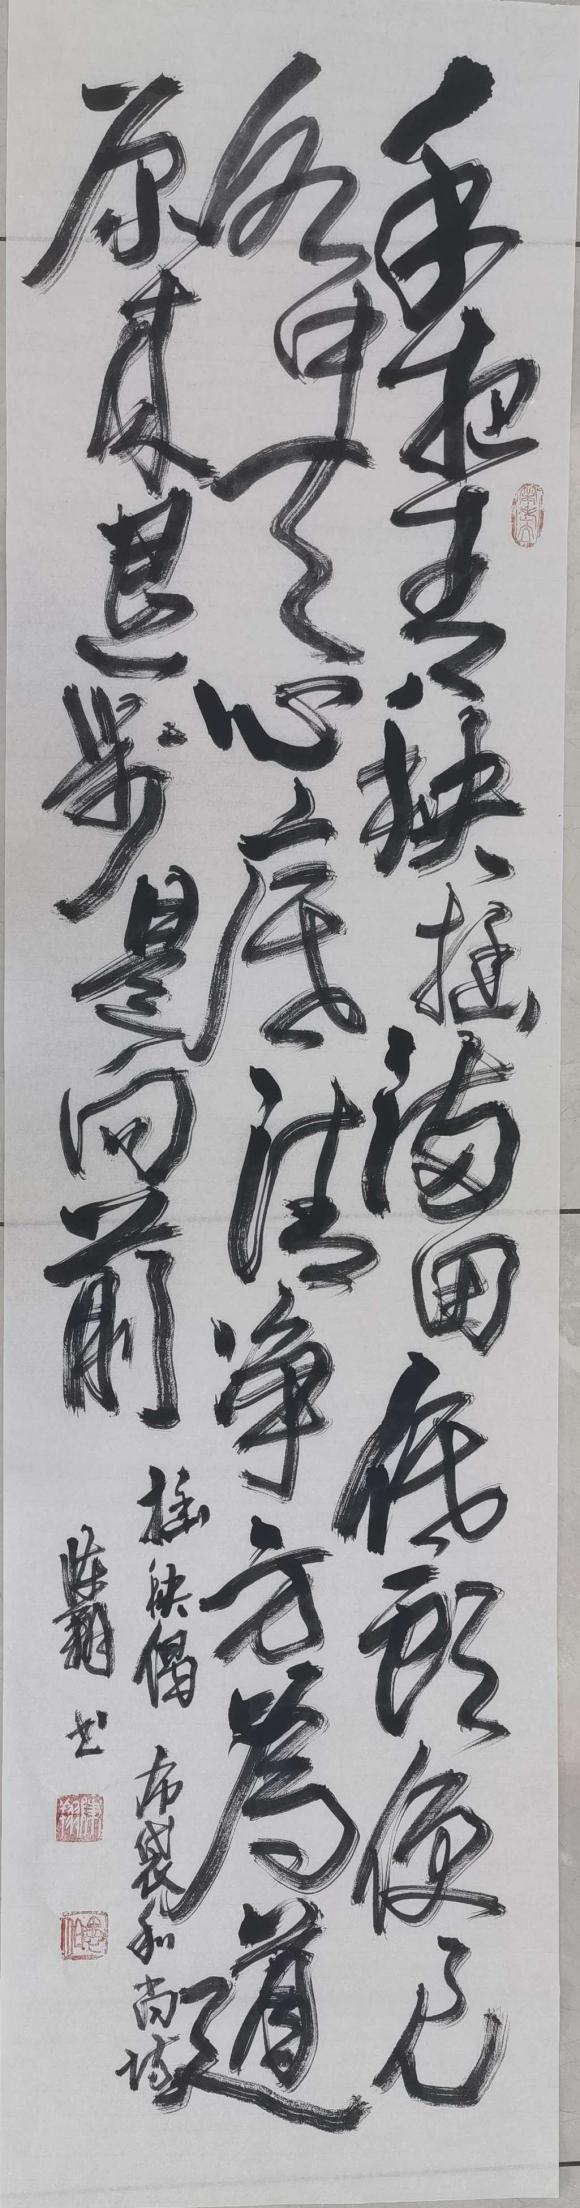 手把青秧插满田低頭便见
水中天心底清净方為道
原来退步是向前
插秧偈 布袋和尚诗
陈翔书